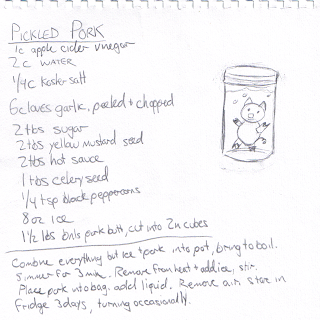 PICKLED PORK
1c apple cider vinegar
2 c WATER
1/4 c Kosher salt
6 cloves garlic, peeled + chopped
2 tbs sugar
2 tbs yellow mustard seed
2 tbs hot sauce
1 tbs celery seed
1/4 tsp black peppercorns
8 oz ice
1 1/2 lbs bnls pork butt, cut into 2in cubes
Combine everything but ice + pork into pot, bring to boil.
Simmer for 3 min. Remove from heat + add ice, stir.
Place pork into bag. add liquid. Remove air. Store in
Fridge 3 days, turning occasionally.